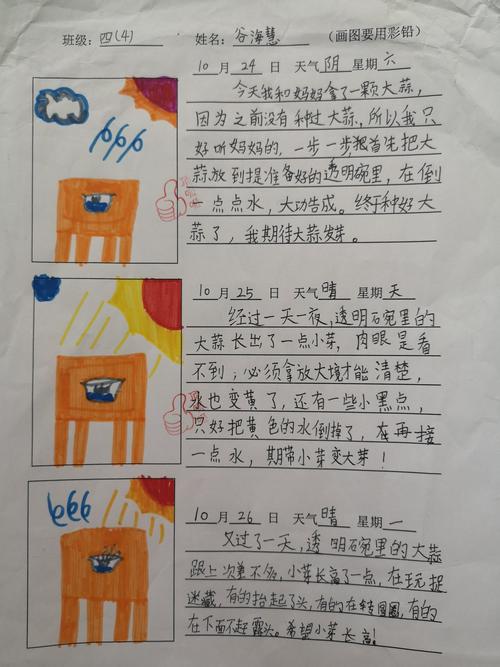 班级：四(4) 姓名：谷海慧 （画图要用彩铅）
10 月 24 日 天气 阴 星期 六
今天我和妈妈拿了一颗大蒜，
因为之前没有种过大蒜，所以我只
好听妈妈的，一步一步狠首先把大
蒜放到提准备好的透明碗里，在倒
一点点水，大功告成。终于种好大
蒜了，我期待大蒜发芽。
10 月 25 日 天气 晴 星期 天
经过一天一夜，透明碗里的
大蒜长出了一点小芽，肉眼是看
不到；必须拿放大境才能清楚，
水也变黄了，还有一些小黑点，
只好把黄色的水倒掉了，在再接
一点水，期带小芽变大芽！
10 月 26 日 天气 晴 星期 一
又过了一天，透明碗里的大蒜
跟上次差不多，小芽长高了一点，在玩捉
迷藏，有的抬起了头，有的在转圈圈，有的
在下面不赶露头。希望小芽长高！